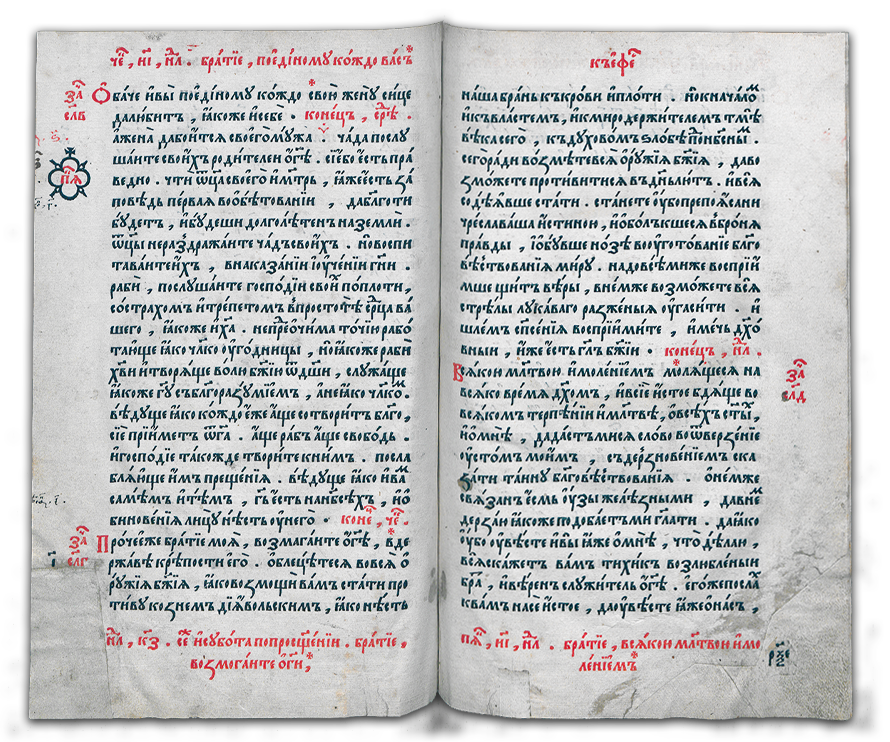 че҃, н҃і, нл҃. братїе, поєді́ному ко́ждо ва́съ
за҃
сл҃в
Оба́че и҆ вы̀ поєді́ному ко́ждо свою̀ жену̀ си́це
да лю́битъ, ꙗ҆́коже и҆ себѐ. коне́цъ, сре҃.
а҆ жена̀ да бои́тся своегѡ̀ му́жа. ча́да послу
шаите свои́хъ роди́телеи ѡ҆ г҃ѣ. сїе́ бо є҆́сть пра
ведно. чти ѿц҃а своего̀ и҆ м҃трь, ꙗ҆́же є҆́сть за
повѣдь пе́рвая во ѡ҆бѣтова́нии, да бл҃го ти
бу́детъ, и҆ бу́деши долголѣ́тенъ на земли̂.
ѿц҃ы не раздража́ите ча́дъ свои́хъ. но̀ воспи
та́ваите и҆́хъ, в наказа́нїи и҆ ᲂу҆че́нїи гн҃и.
раби̂, послу́шаите господі́и свои́ по пло́ти,
со стра́хомъ и҆ тре́петомъ в простотѣ̀ ср҃ца ва́
шего, ꙗ҆́коже и҆ х҃а. не пре́д ѻ҆чима то́чїю рабо́
тающе ꙗ҆́ко чл҃ко ᲂу҆го́дницы, но̀ ꙗ҆́коже раби̂
хв҃и и҆ творя́ще во́лю бж҃їю ѿ дш҃и, служа́ще
ꙗ҆́коже г҃у съ бл҃горазу́мїемъ, а҆ не ꙗ҆́ко чл҃комъ.
вѣ́дуще ꙗ҆́ко ко́ждо є҆́же а҆́ще сотвори́тъ бл҃го,
сїѐ прїи́метъ ѿ г҃а. а҆́ще ра́бъ а҆́ще свобо́дь.
и҆ господі́е та́кожде твори́те к ни́мъ. посла
бля́юще и҆́мъ преще́нїя. вѣ́дуще ꙗ҆́ко и҆ ва́м
самѣ́мъ и҆ тѣ́мъ, г҃ь є҆́сть на нб҃сѣ́хъ, и҆ ѻ҆
бинове́нїя лицу̀ нѣ́сть ᲂу҆ негѡ̀. коне҃, че҃.
за҃
сл҃г
Про́чее же бра́тїе моя̀, возмога́ите ѡ҆ г҃ѣ, в де
ржа́вѣ крѣ́пости є҆гѡ̀. ѡ҆блецѣ́теся во вся̀ ѻ҆
ру́жїя бж҃їя, ꙗ҆́ко возмощѝ ва́мъ ста́ти про
ти́ву ко́знемъ дїя́вольскимъ, ꙗ҆́ко нѣ́сть
нл҃, кз҃. су҃ и҆ суббо́та по просвѣще́нїи. бра́тїе,
возмога́ите ѡ҆ г҃ѣ,
къ є҆фе҃
на́ша бра́нь къ кро́ви и҆ пло́ти но̀ к нача́лом
и҆ къ власте́мъ, и҆ к миродержи́телемъ тмы̀
вѣ́ка сегѡ̀, къ духо́вомъ ѕло́бѣ поднбе́сным.
сегѡ̀ ра́ди возмѣ́те вся̀ ѻ҆ру́жїя бж҃їя, да во
змо́жете проти́витися в де́нь лю́тъ. и҆ вся̀
содѣ́явше ста́ти. ста́нете ᲂу҆̀бо препоя́сани
чресла̀ ва́ша и҆́стиною, и҆ ѻ҆бо́лкъшеся в броня̀
пра́вды, и҆ ѻ҆бу́вше но́зѣ во ᲂу҆гото́ванїе бл҃го
вѣ́ствованїя ми́ру. над о всѣ́ми же воспрїи́
мше щи́тъ вѣ́ры, в не́мже возмо́жете вся̀
стрѣ́лы лука́ваго разже́ныя ᲂу҆гаси́ти. и҆
шле́мъ сп҃се́нїя воспрїими́те, и҆ ме́чь дх҃о́
вныи, и҆́же є҆́сть гл҃ъ бж҃їи. коне́цъ, нл҃.
Вся́кою мл҃твою и҆ моле́нїемъ моля́щеся на
вся́ко вре́мя дх҃омъ, и҆ в сїѐ и҆́стое бдя́ще во
вся́комъ терпѣ́нїи и҆ мл҃твѣ, ѡ҆ всѣ́хъ ст҃ы́,
и҆ ѡ҆ мнѣ̀, да да́стъ ми ся сло́во во ѿверзе́нїе
ᲂу҆́стомъ мои́мъ, съ дерзнове́нїемъ ска
за́ти та́ину бл҃говѣствова́нїя. ѡ҆ не́мже
свя́занъ є҆́смь ᲂу҆́зы желѣ́зными, да в не́м
дерза́ю ꙗ҆́коже подоба́етъ ми гл҃ати. да ꙗ҆́ко
ᲂу҆̀бо ᲂу҆вѣ́сте и҆ вы̀ ꙗ҆́же ѡ҆ мнѣ̀, что̀ дѣ́лаю,
вся̀ ска́жетъ ва́мъ тихи́къ возлю́бленыи
бра́, и҆ вѣ́ренъ служи́тель ѡ҆ г҃ѣ. є҆го́же посла́х
к ва́мъ на сѐ и҆́стое, да ᲂу҆вѣ́сте ꙗ҆́же ѡ҆ на́съ,
за҃
сл҃д
пя҃, н҃і, нл҃. бра́тїе, вся́кою мл҃твою и҆ мо
ле́нїемъ
рк҃е